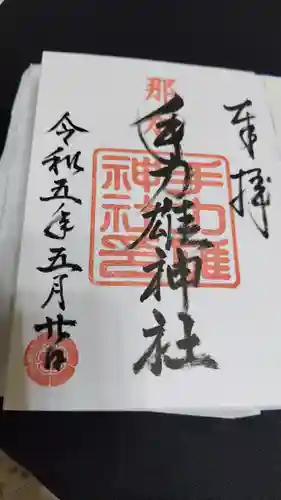 奉拝
那加
手力雄神社
手力雄
神社印
令和五年五月廿日